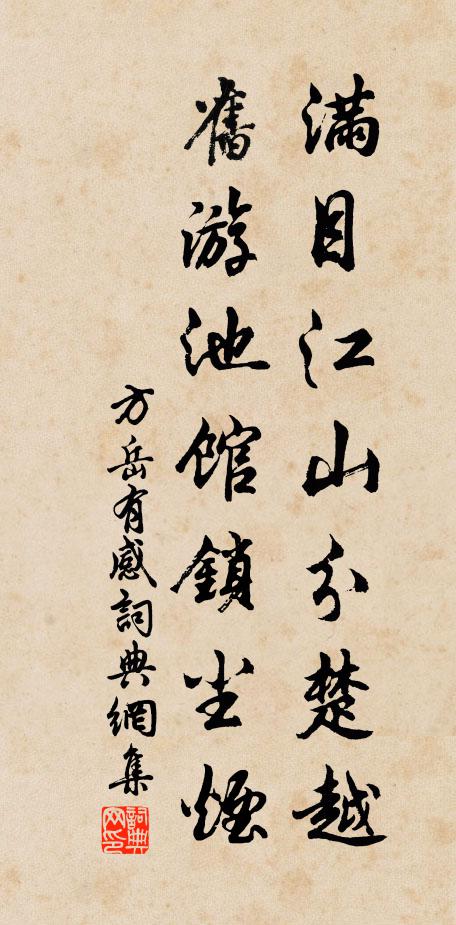 滿目江山分楚越
舊游池館鎖尘煙
方岳有感詞典網集
詞典网印